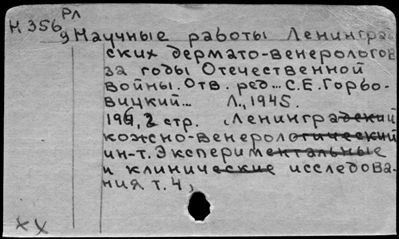 Рл
М 356, 9
Научные работы Ленинград
ских дермато-венерологов
за годы Отечественной
войны. Отв. ред... С.Е. Горбо-
вицкий... Л., 1945.
196, 2 стр. (Ленинградский
кожно-венерологический
ин-т. Экспериментальные
и клинические исследова-
ния т. 4)
XX